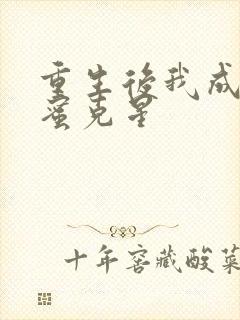 重生後我成
蜜克星
十年窖藏酸菜